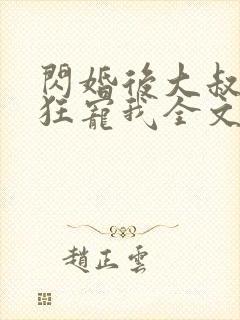 閃婚後大叔
狂寵我全文
趙正雲